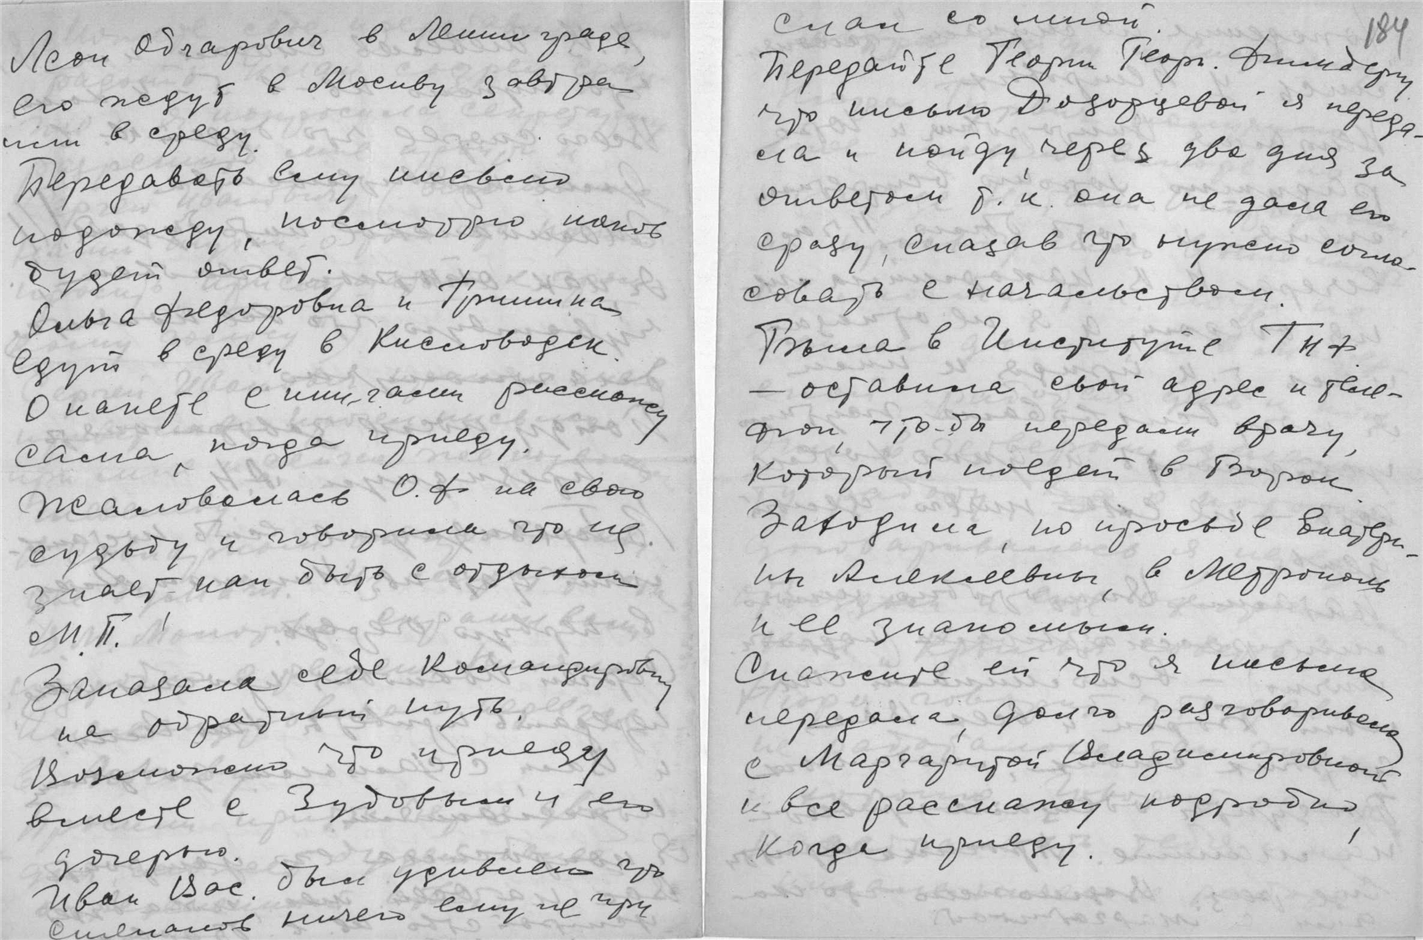 Леон Абгарович в Ленинграде,
его ждут в Москву завтра
или в среду.
Передавать ему письмо
подожду, посмотрю каков
будет ответ.
Ольга Федоровна и Гришина
едут в среду в Кисловодск.
О пакете с книгами расскажу
сама, когда приеду.
Жаловалась О.Ф. на свою
судьбу и говорила что не
знает как быть с отдыхом
М.П.!
Заказала себе командировку
на обратный путь.
Возможно что приеду
вместе с Зубовым и его
дочерью.
Иван Вас. был удивлен что
ничего ему не при
слал со мной.
184
Передайте Георги Георг.
что письмо Дозорцевой я переда-
ла и пойду через два дня за
ответом т.к. она не дала его
сразу, сказав что нужно согла-
совать с начальством.
Была в Институте
— оставила свой адрес и теле-
фон, что-бы передали врачу,
который поедет в Борок.
Заходила, по просьбе Екатери-
ны Алексеевны, в Метрополь
к ее знакомым.
Скажите ей что я письма
передала, долго разговаривала
с Маргаритой Владимировной
и все расскажу подробно,
когда приеду.